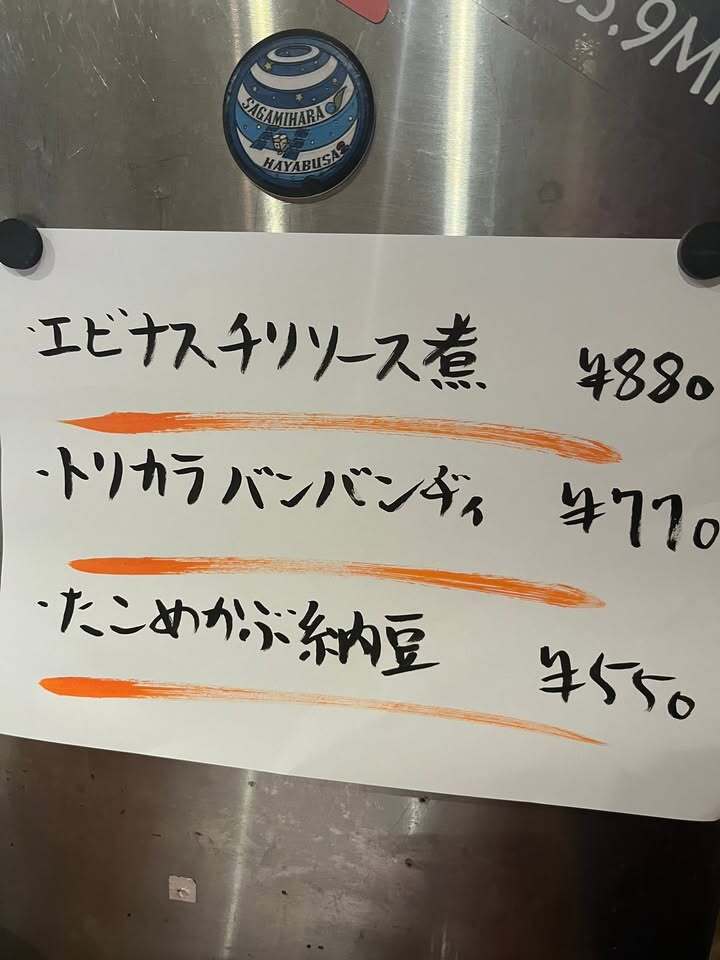 SAGAMIHARA
HAYABUSA2
5.9M
・エビナスチリソース煮 ¥880
・トリカラバンバンヂィ ¥770
・たこめかぶ納豆 ¥550